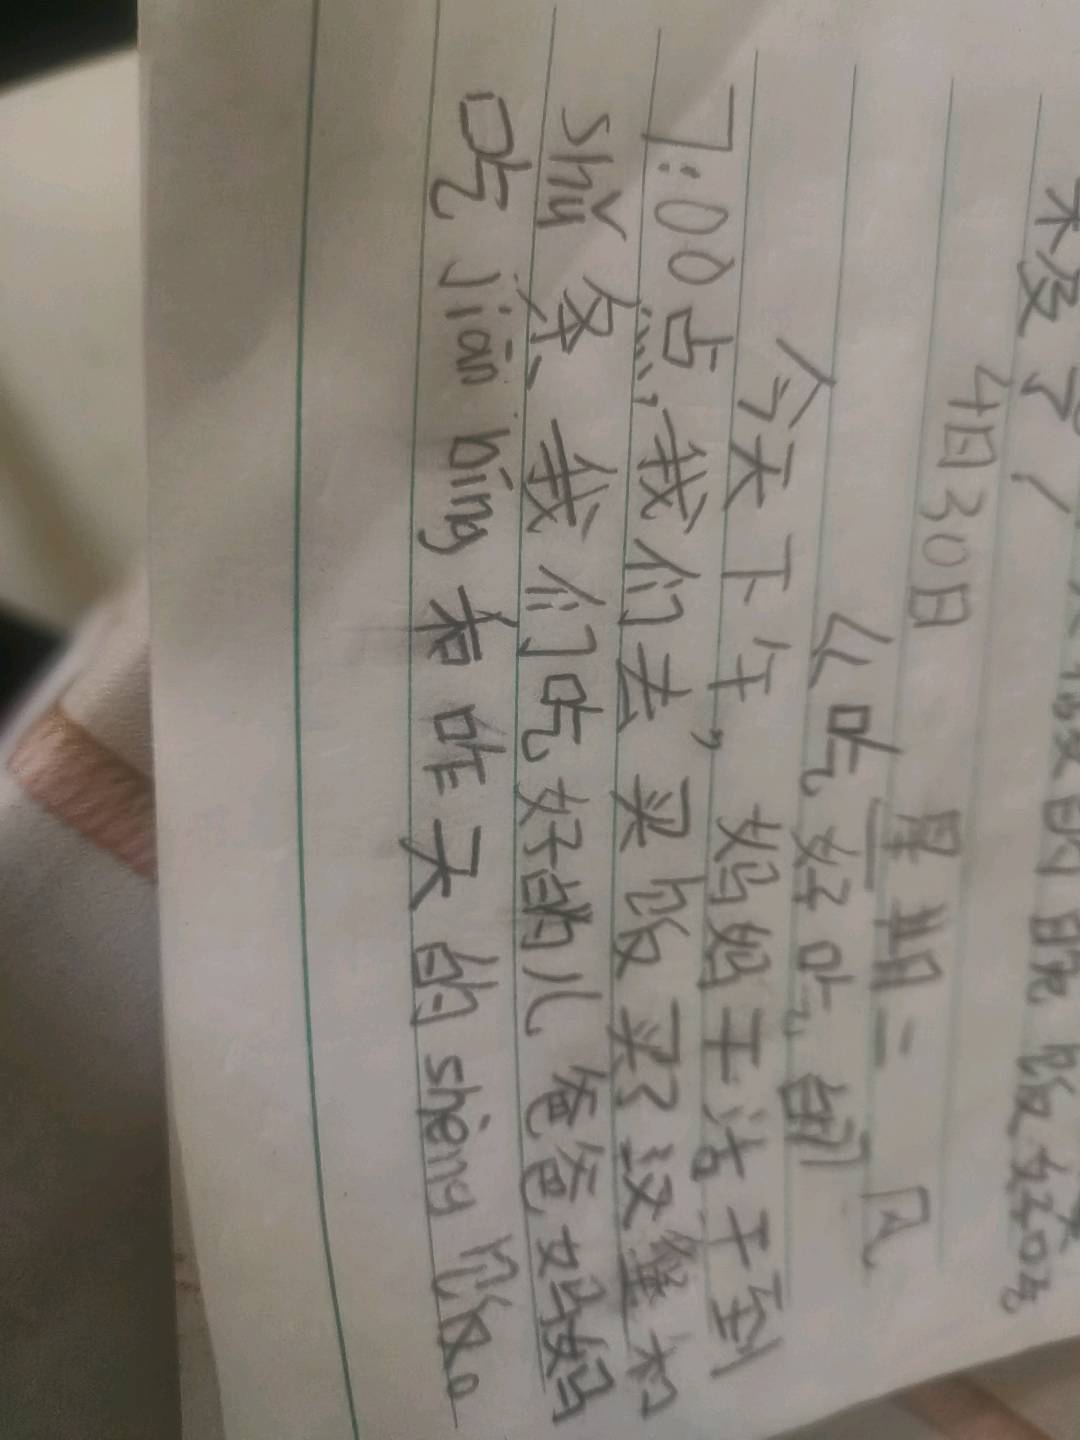 不没了
的眼
4日30日 星期二 风
《吃好吃的》
今天下午,妈妈干活干到
7:00点,我们去买饭买了汉堡和
shǔ条、我们吃好的儿爸爸妈妈
吃jiān bing和昨天的shèng饭。